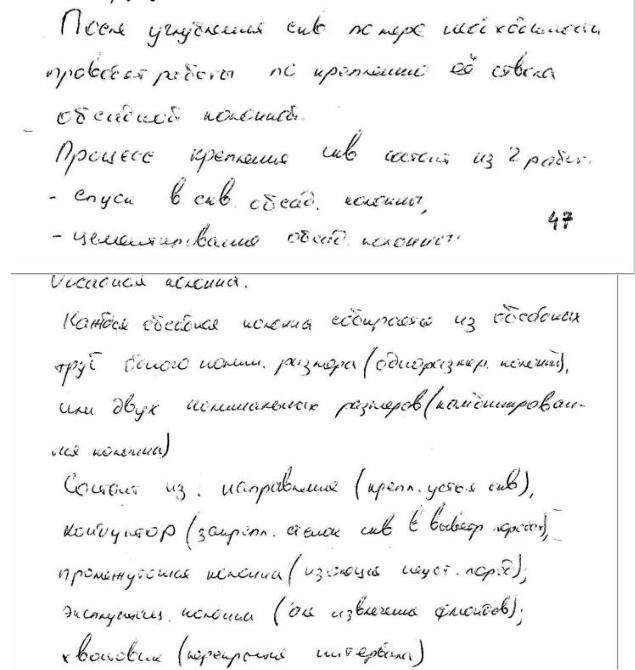 После углубления скв по мере необходимости
проводят работы по креплению её ствола
обсадной колонной.
Процесс крепления скв состоит из 2 работ.
- спуск в скв. обсад. колонны,
- цементирование обсад. колонны.
47
Обсадная колонна.
Каждая обсадная колонна собирается из обсадных
труб одного номин. размера (одноразмер. колонны),
или двух номинальных размеров (комбинирован-
ная колонна)
Состоит из: направление (крепл. устья скв),
кондуктор (закрепл. стенок скв в
промежуточная колонна (изоляция неуст. пород);
эксплуатац. колонна (для извлечения флюидов);
хвостовик (перекрытие интервала)